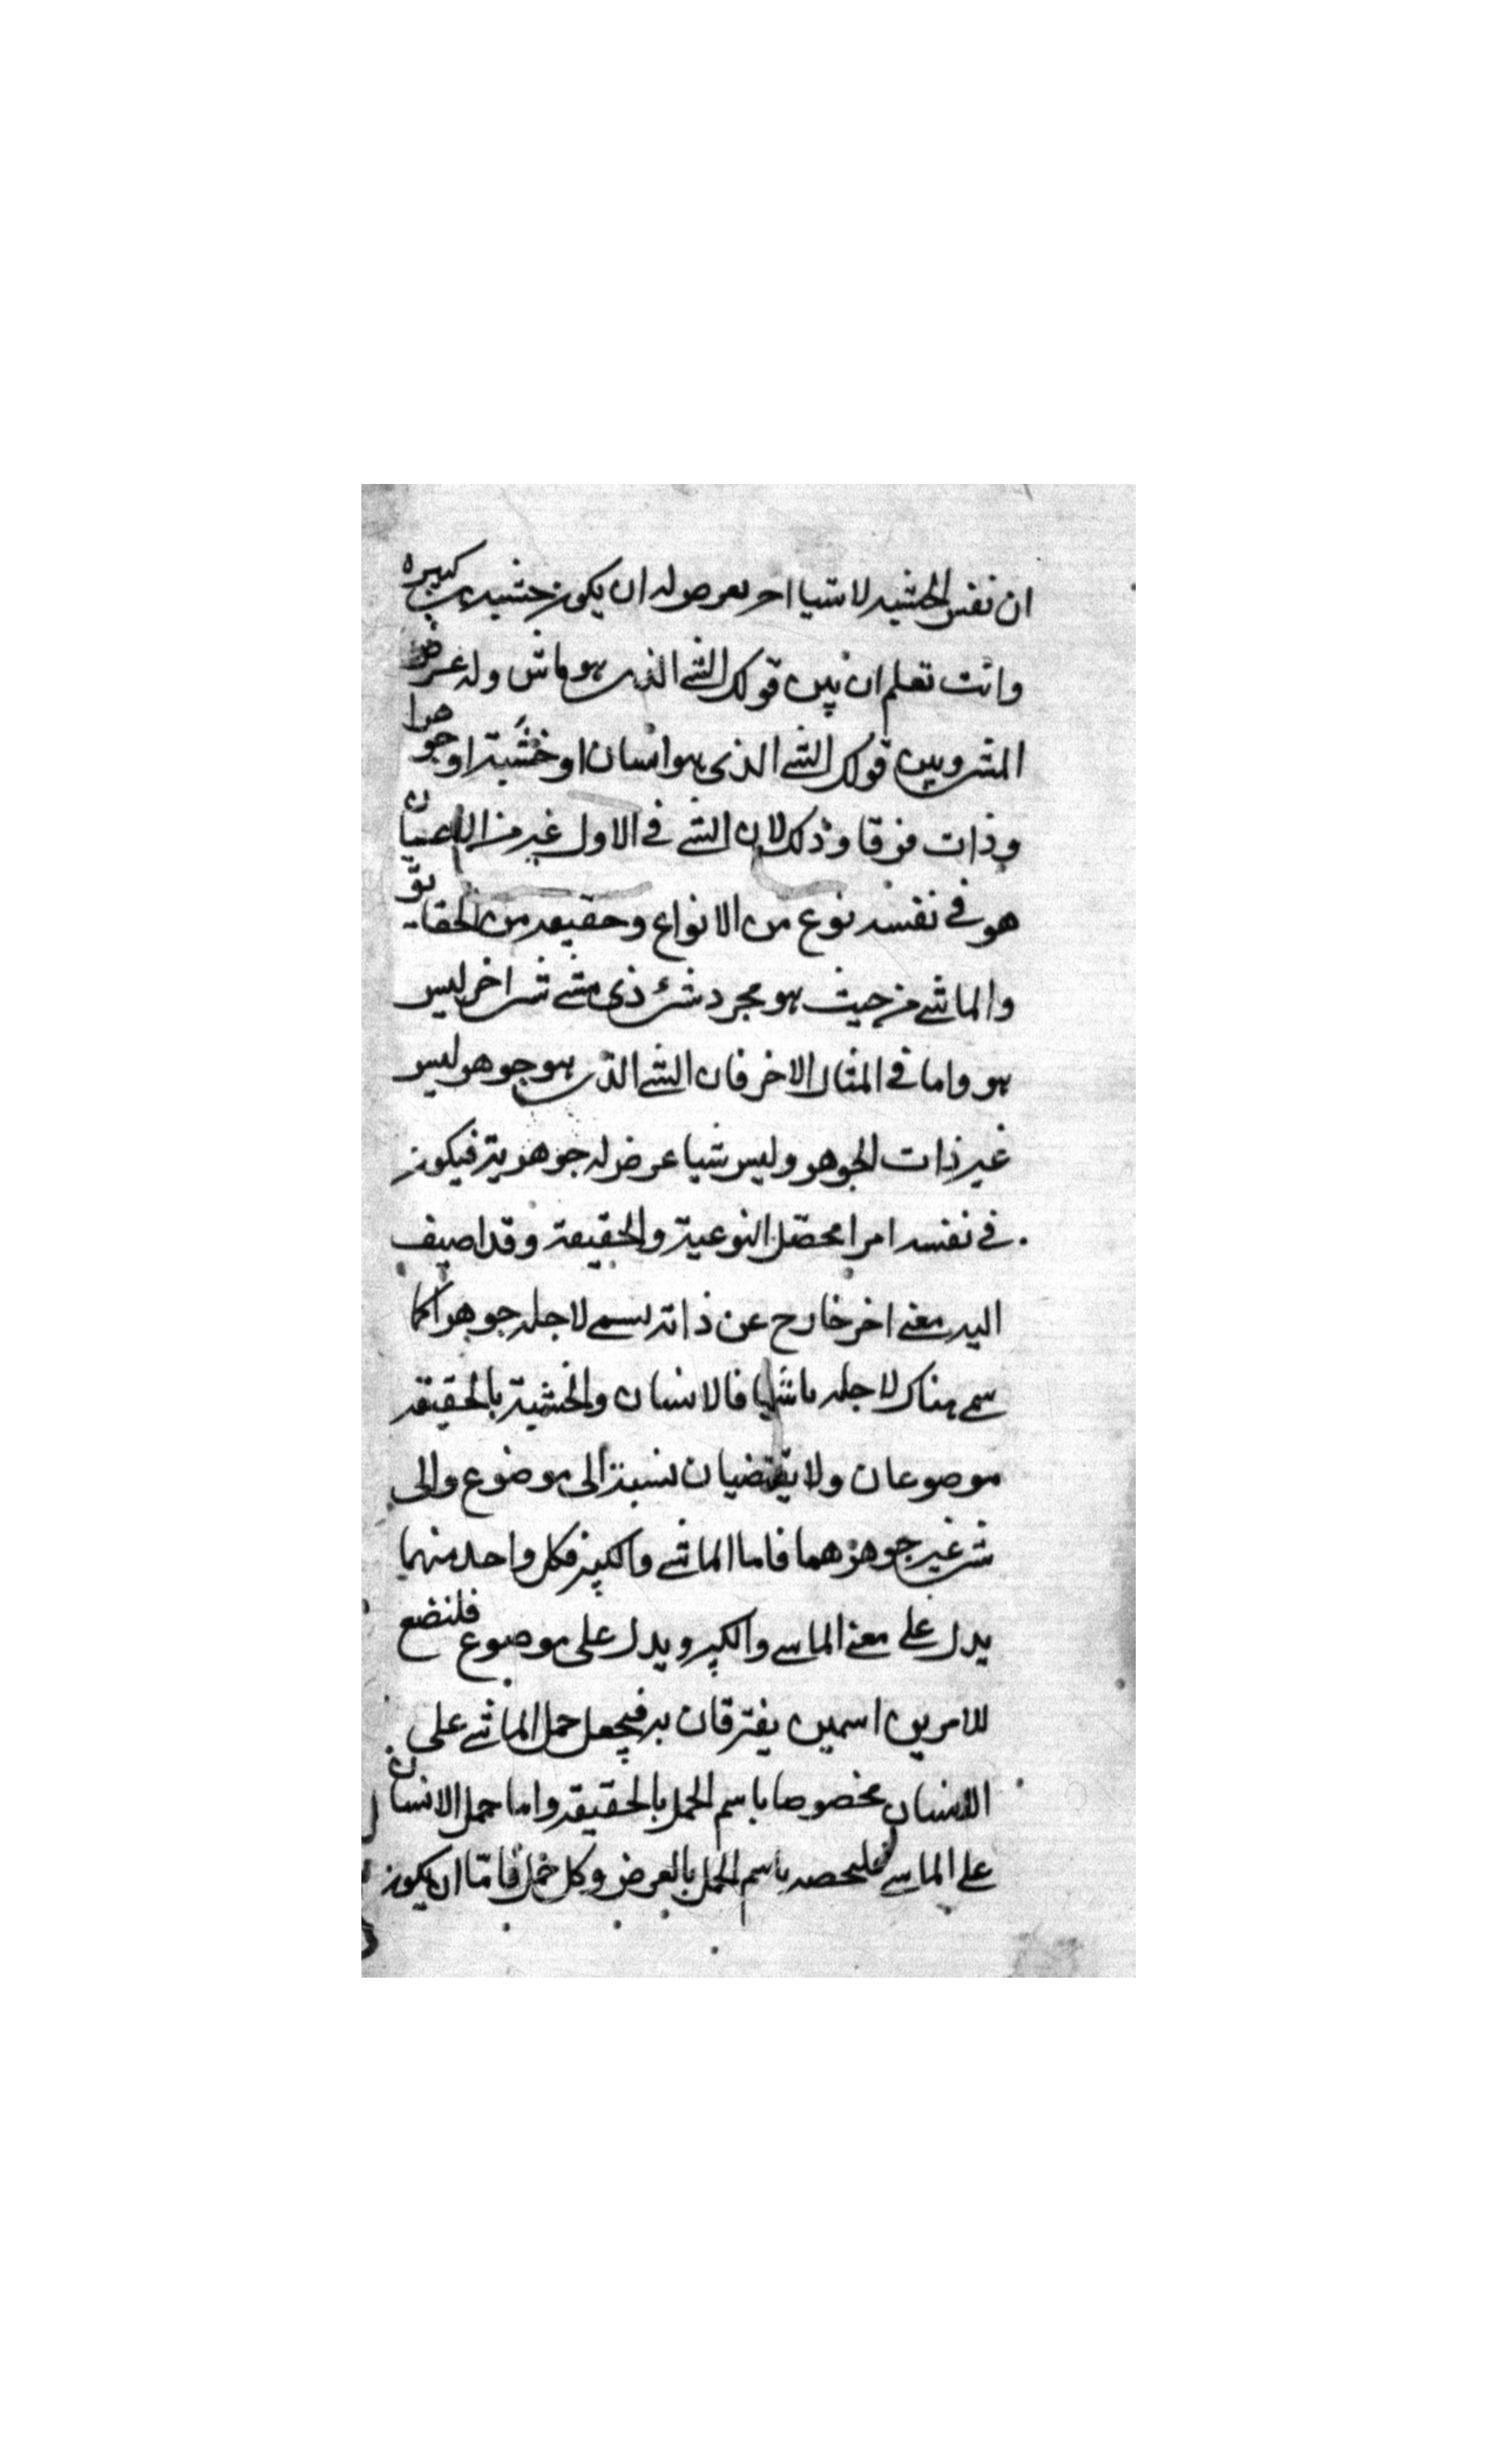 ان نفس الخشبة لا شيا اخر يعرض له ان يكون خشبة كبيرة
وانت تعلم ان بين قولك الشي الذي هو ماش وله عرض
المشي وبين قولك الشي الذي هو انسان او خشبة او جوهرا
وذات فرقا وذلك لان الشي في الاول غير من الاعيان
هو في نفسه نوع من الانواع وحقيقة من الحقايق
والماشي من حيث هو مجرد شيء ذي مشي شي اخر ليس
هو واما في المثال الاخر فان الشي الذي هو جوهر ليس
غير ذات الجوهر وليس شيا عرض له جوهرية فيكون
في نفسه امرا محصل النوعية والحقيقة وقد اضيف
اليه معنى اخر خارج عن ذاته يسمى لاجله جوهرا كما
سمي هناك لاجله ماشيا فالانسان والخشبة بالحقيقة
موضوعان ولا يقتضيان نسبة الى موضوع والى
شي غير جوهرهما فاما الماشي والكبير فكل واحد منهما
يدل على معنى الماشي والكبير ويدل على موضوع فلنضع
للامرين اسمين يفترقان به فيجعل حمل الماشي على
الانسان مخصوصا باسم الحمل بالحقيقة واما حمل الانسان
على الماشي فليخصه باسم الحمل بالعرض وكل حمل فاما ان يكون